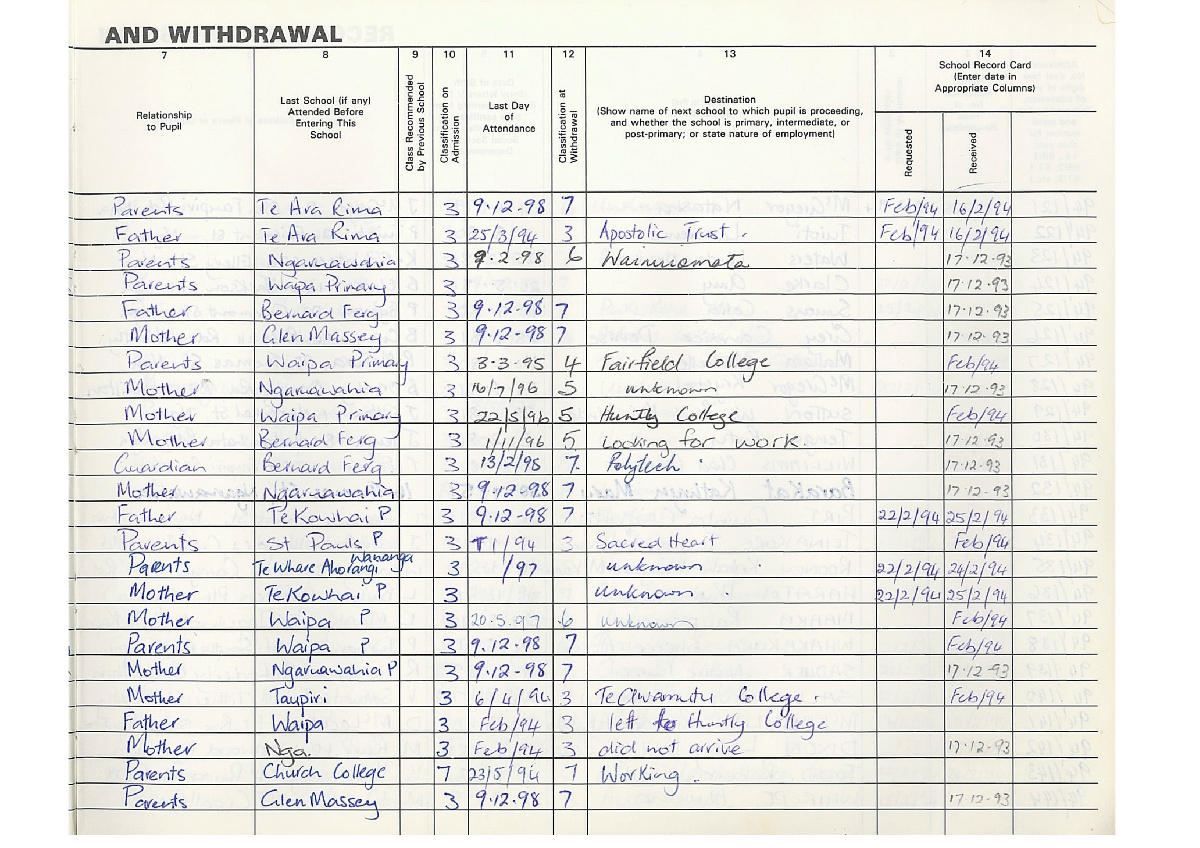 AND WITHDRAWAL
7 8 9 10 11 12 13 14
Relationship to Pupil
Last School (if any) Attended Before Entering This School
Class Recommended by Previous School
Classification on Admission
Last Day of Attendance
Classification at Withdrawal
Destination (Show name of next school to which pupil is proceeding, and whether the school is primary, intermediate, or post-primary; or state nature of employment)
School Record Card (Enter date in Appropriate Columns)
Requested Received
Parents Te Ara Rima 3 9.12.98 7 Feb/94 16/2/94
Father Te Ara Rima 3 25/3/94 3 Apostolic Trust. Feb/94 16/2/94
Parents Ngaruawahia 3 9.2.98 6 Wainuiomata 17.12.93
Parents Waipa Primary 3 17.12.93
Father Bernard Ferg 3 9.12.98 7 17.12.93
Mother Glen Massey 3 9.12.98 7 17.12.93
Parents Waipa Primary 3 3.3.95 4 Fairfield College Feb/94
Mother Ngaruawahia 3 16/7/96 5 unknown 17.12.93
Mother Waipa Primary 3 22/5/96 5 Huntly College Feb/94
Mother Bernard Ferg 3 1/11/96 5 Looking for work. 17.12.93
Guardian Bernard Ferg. 3 13/2/98 7. Polytech. 17.12.93
Mother Ngaruawahia 3 9.12.98 7 17.12.93
Father Te Kowhai P 3 9.12-98 7 22/2/94 25/2/94
Parents St Pauls P 3 T1/94 3 Sacred Heart Feb/94
Parents Te Whare Ahorangi Wananga 3 /97 unknown 22/2/94 24/2/94
Mother Te Kowhai P 3 unknown. 22/2/94 25/2/94
Mother Waipa P 3 20.5.97 6 unknown Feb/94
Parents Waipa P 3 9.12.98 7 Feb/94
Mother Ngaruawahia P 3 9.12.98 7 17.12.93
Mother Taupiri 3 6/4/94 3 Te Awamutu College. Feb/94
Father Waipa 3 Feb/94 3 left to Huntly College
Mother Nga. 3 Feb/94 3 did not arrive 17.12.93
Parents Church College 7 23/5/94 7 Working.
Parents Glen Massey 3 9.12.98 7 17.12.93